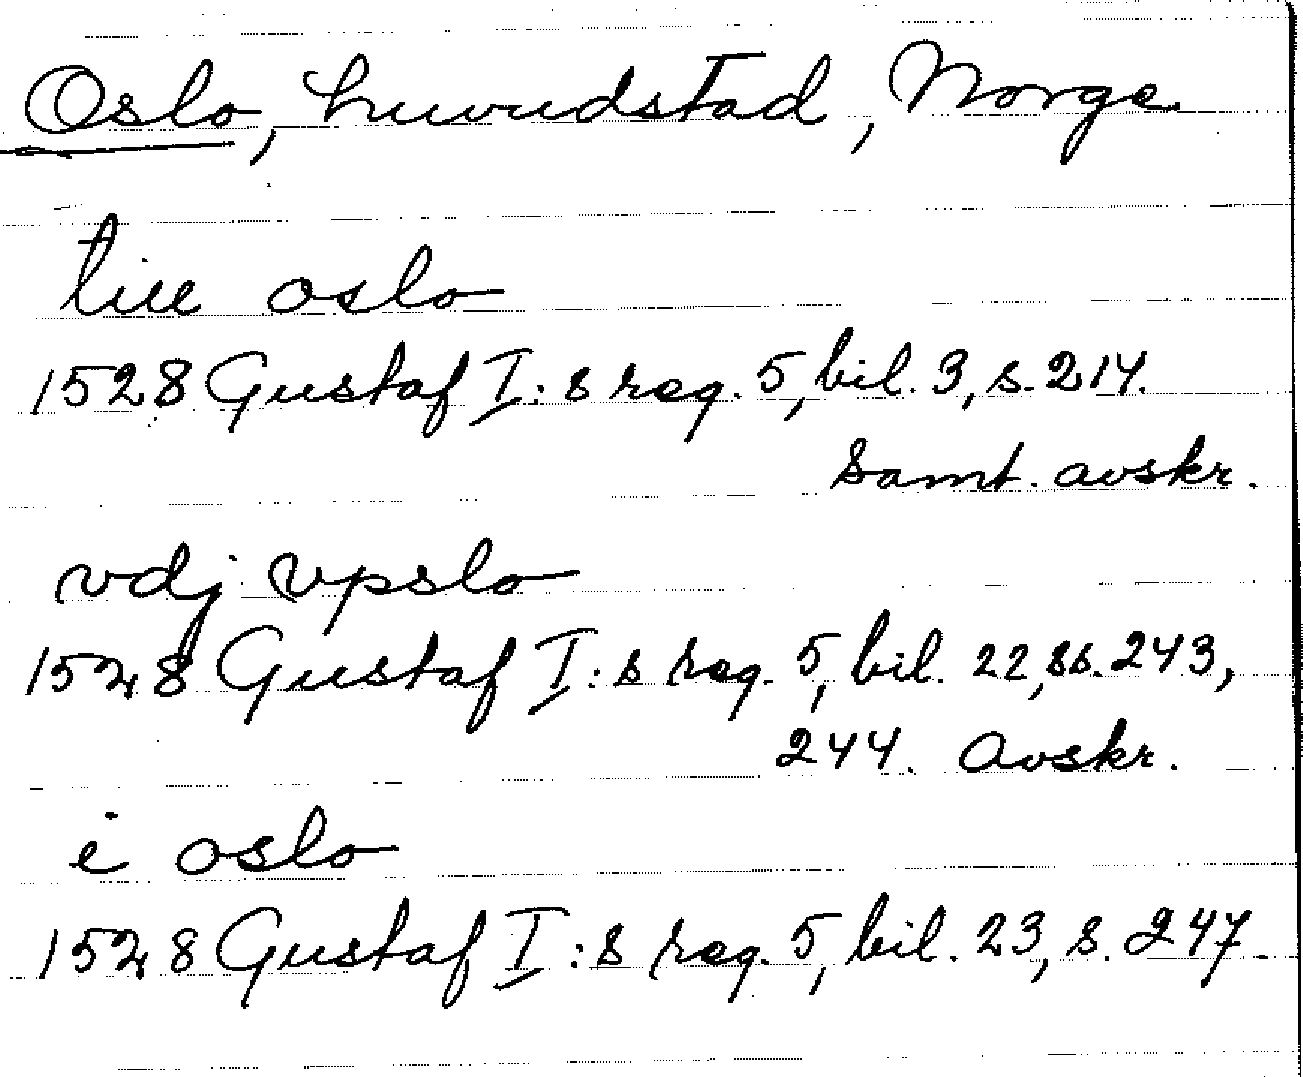 Oslo, huvudstad, Norge
till oslo
1528 Gustaf I:s reg. 5, bil. 3, s. 214.
Samt. avskr.
vdj vpslo
1528 Gustaf I:s reg. 5, bil. 22, ss. 243,
244. Avskr.
i oslo
1528 Gustaf I:s reg. 5, bil. 23, s. 247